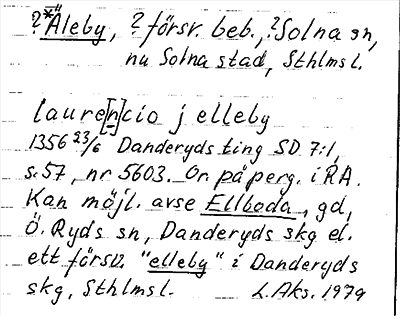 ? *Äleby, ? försv. beb., ? Solna sn,
nu Solna stad, Sthlms l.
laure[n]cio j elleby
1356 23/6 Danderyds ting SD 7:1,
s. 57, nr 5603. Or. på perg. i RA.
Kan möjl. avse Ellboda, gd,
Ö. Ryds sn, Danderyds skg el.
ett försv. "elleby" i Danderyds
skg, Sthlms l. L. Aks. 1979